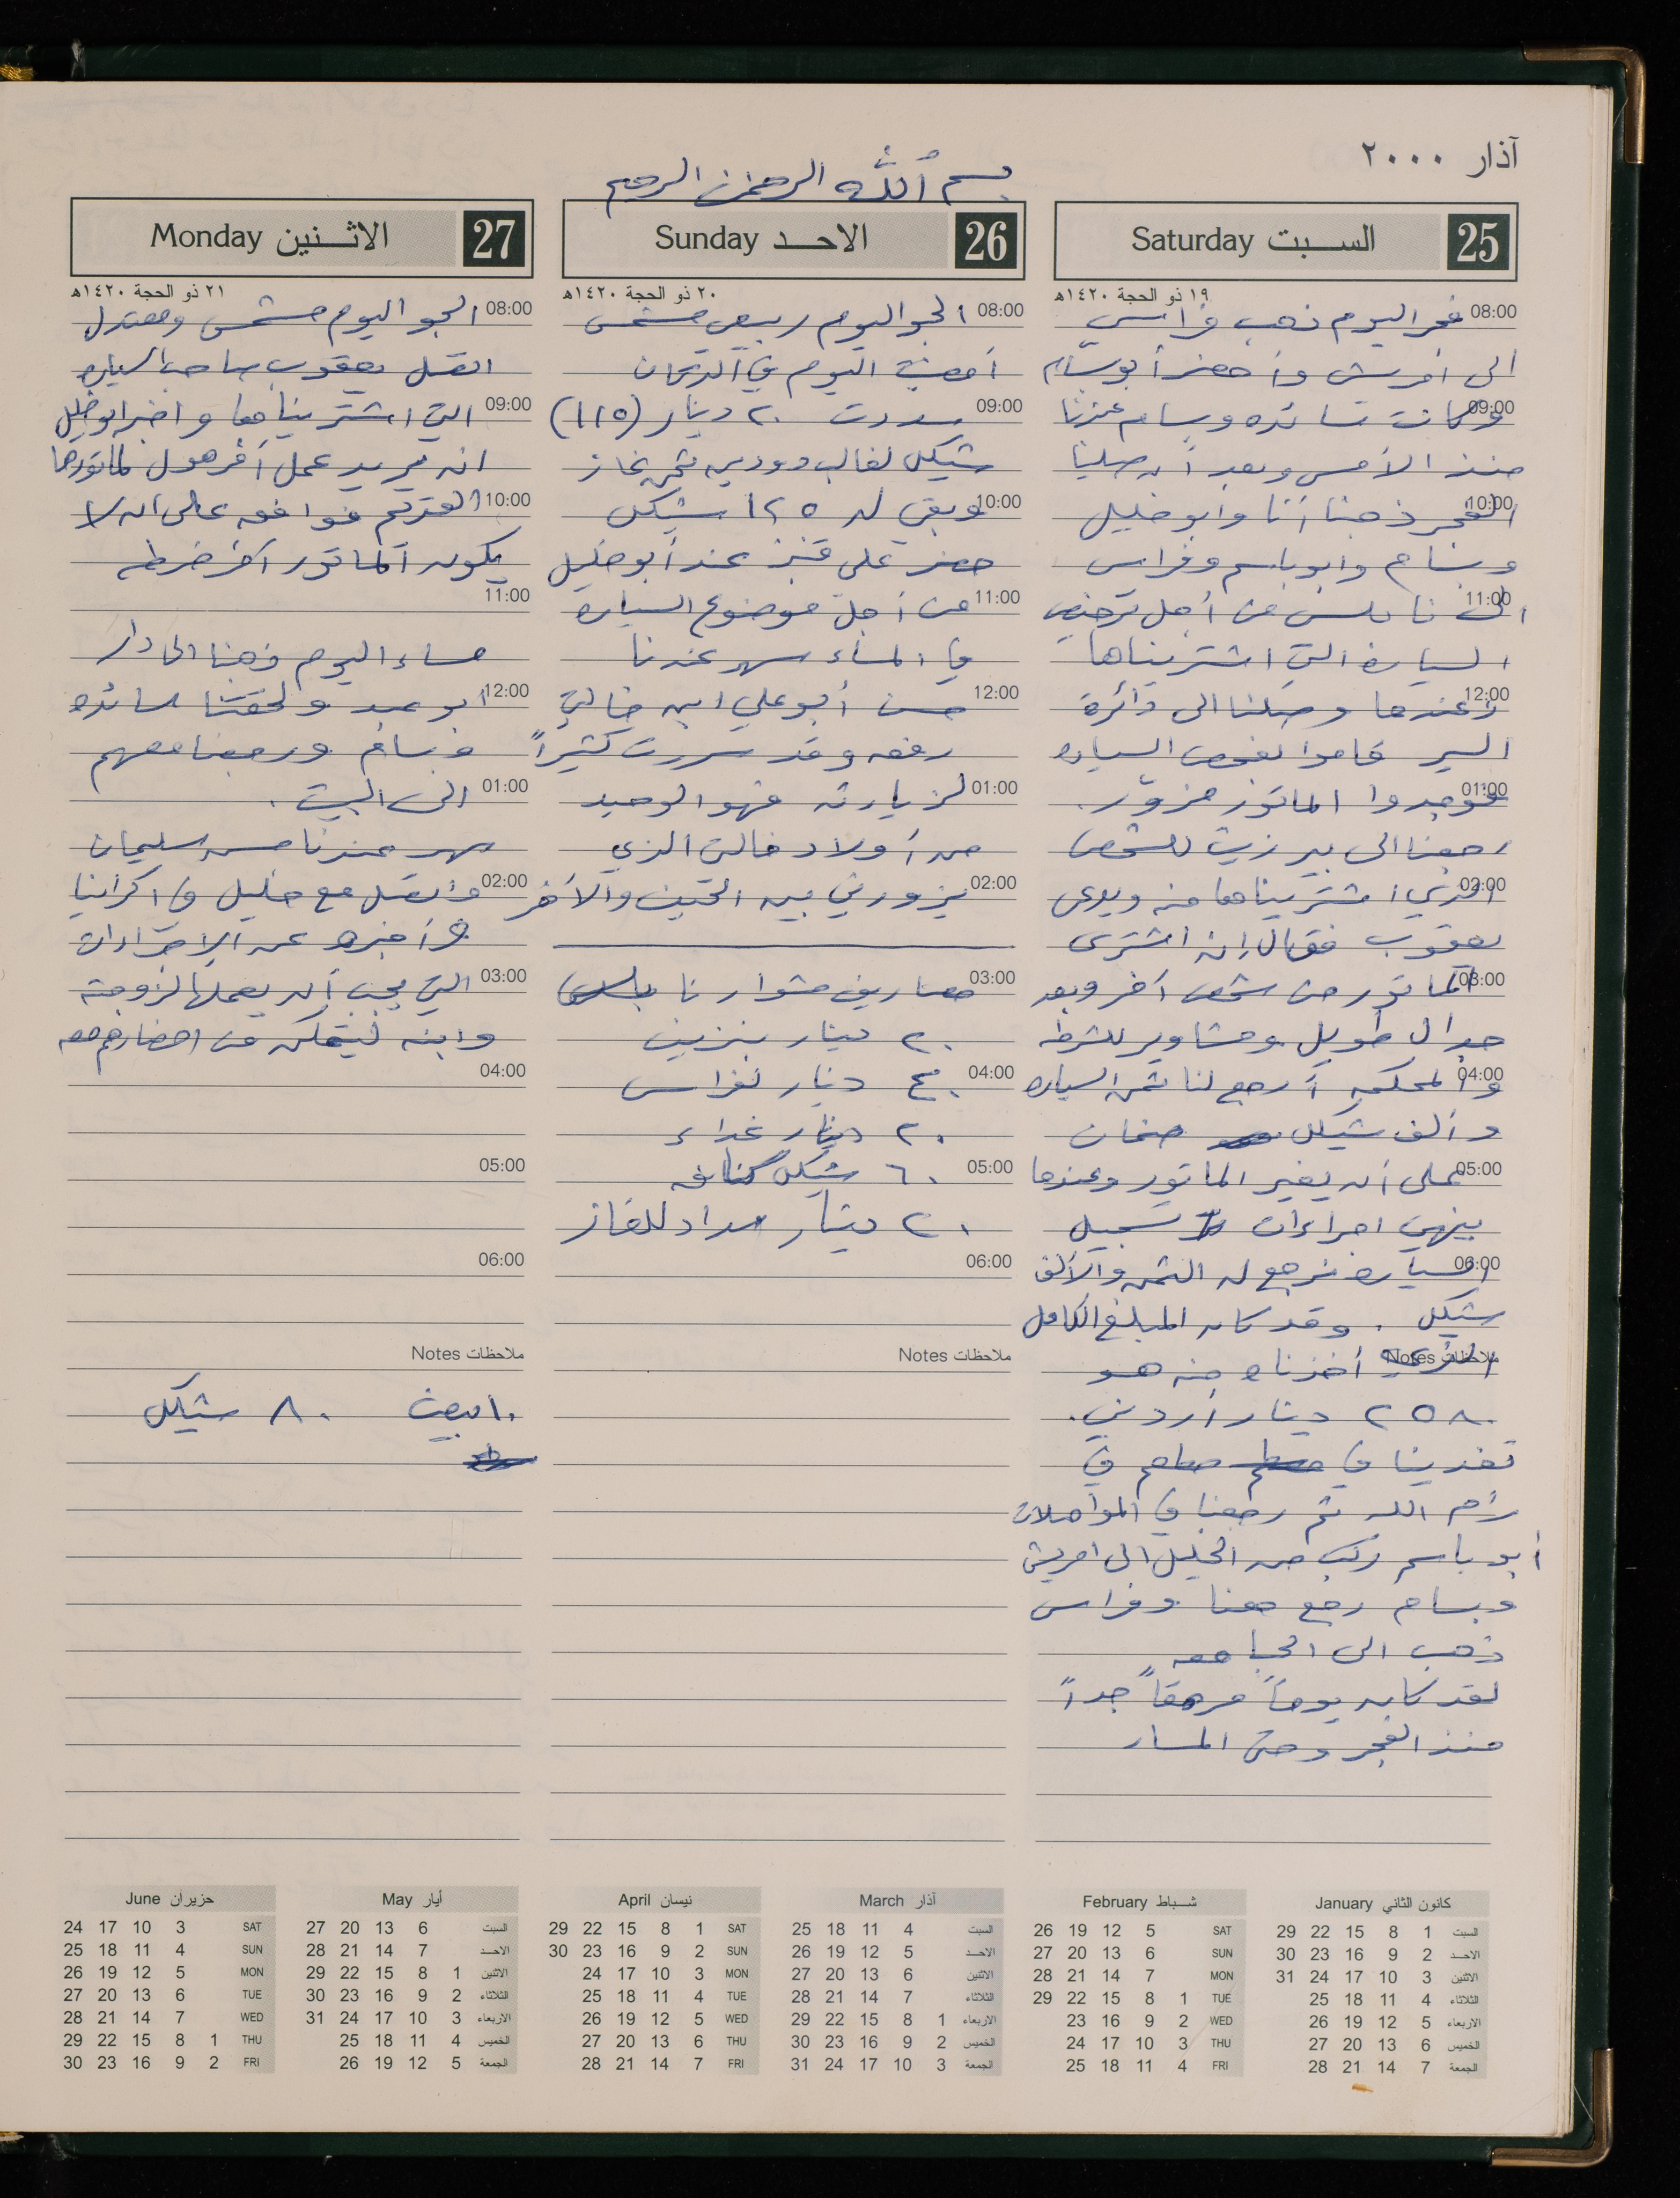 آذار ٢٠٠٠
بسم الله الرحمن الرحيم
السبت Saturday 25
١٩ ذو الحجة ١٤٢٠هـ
08:00 فجر اليوم ذهب فراس
الى امريش وأحضر أبو بسام
09:00 وكانت تسائده وبسام عندنا
منذ الأمس وبعد أن صلينا
10:00 الفجر ذهبنا أنا وابو خليل
وبسام وابو باسم وفراس
11:00 الى نابلس من أجل ترخيص
السيارة التي اشتريناها
12:00 وعندما وصلنا الى دائرة
السير قاموا بفحص السياره
01:00 فوجدوا الماتور مزوّر.
رجعنا الى بير زيت للشخص
02:00 الذي اشتريناها منه ويدعى
يعقوب فقال إنه اشترى
03:00 الماتور من شخص آخر وبعد
جدال طويل ومشاوير للشرطه
04:00 والمحكمه أرجع لنا ثمن السياره
وألف شيكل ضمان
05:00 على أن يغير الماتور وعندما
ينهي اجراءات تسجيل
06:00 السياره نرجع له الثمن والألف
شيكل . وقد كان المبلغ الكامل
ملاحظات Notes
الذي أخذناه منه هو
٢٥٨٠ دينار أردني.
تغدينا في مطعم في
رام الله ثم رجعنا في المواصلات
أبو باسم ركب من الخليل الى امريش
وبسام رجع معنا وفراس
ذهب الى الجامعه
لقد كان يوماً مرهقاً جداً
منذ الفجر وحتى المساء
الاحد Sunday 26
٢٠ ذو الحجة ١٤٢٠هـ
08:00 الجو اليوم ربيعي مشمس
أمضيت اليوم في الدكان
09:00 سددت ٢٠ دينار (١١٥)
شيكل لغالب دودين ثمن غاز
10:00 وبقي له ١٢٥ شيكل
حضر علي قنيز عند أبو خليل
11:00 من أجل موضوع السياره
في المساء سهر عندنا
12:00 حسن أبو علي ابن خالتي
رفقه وقد سررت كثيراً
01:00 لزيارته فهو الوحيد
من أولاد خالتي الذي
02:00 يزورني بين الحين والآخر
03:00 مصاريف مشوارنا
٢٠ دينار بنزين
04:00 ٤٠ دينار لفراس
٢٠ دينار غداء
05:00 ٦٠ شيكل كنافه
٢٠ دينار سداد للغاز
06:00
ملاحظات Notes
الاثنين Monday 27
٢١ ذو الحجة ١٤٢٠هـ
08:00 الجو اليوم مشمس ومعتدل
اتصل يعقوب صاحب السياره
09:00 التي اشتريناها واخبر ابو خليل
انه يريد عمل أفرهول لماتورها
10:00 القديم فوافقه على ان لا
يكون الماتور آخر خرطه
11:00
مساء اليوم ذهبنا الى دار
12:00 ابو عبد ولحقتنا سائده
وبسام ورجعنا معهم
01:00 الى البيت .
سهر عندنا حسن سليمان
02:00 واتصل مع خليل في اكرانيا
وأخبره عن الإجراءات
03:00 التي يجب أن يعملها لزوجته
وابنه ليتمكن من احضارهم معه
04:00
05:00
06:00
ملاحظات Notes
١٠ بيض ٨٠ شيكل
كانون الثاني January
السبت 1 8 15 22 29
الاحد 2 9 16 23 30
الاثنين 3 10 17 24 31
الثلاثاء 4 11 18 25
الاربعاء 5 12 19 26
الخميس 6 13 20 27
الجمعة 7 14 21 28
شباط February
SAT 5 12 19 26
SUN 6 13 20 27
MON 7 14 21 28
TUE 1 8 15 22 29
WED 2 9 16 23
THU 3 10 17 24
FRI 4 11 18 25
آذار March
السبت 4 11 18 25
الاحد 5 12 19 26
الاثنين 6 13 20 27
الثلاثاء 7 14 21 28
الاربعاء 1 8 15 22 29
الخميس 2 9 16 23 30
الجمعة 3 10 17 24 31
نيسان April
SAT 1 8 15 22 29
SUN 2 9 16 23 30
MON 3 10 17 24
TUE 4 11 18 25
WED 5 12 19 26
THU 6 13 20 27
FRI 7 14 21 28
أيار May
السبت 6 13 20 27
الاحد 7 14 21 28
الاثنين 1 8 15 22 29
الثلاثاء 2 9 16 23 30
الاربعاء 3 10 17 24 31
الخميس 4 11 18 25
الجمعة 5 12 19 26
حزيران June
SAT 3 10 17 24
SUN 4 11 18 25
MON 5 12 19 26
TUE 6 13 20 27
WED 7 14 21 28
THU 1 8 15 22 29
FRI 2 9 16 23 30